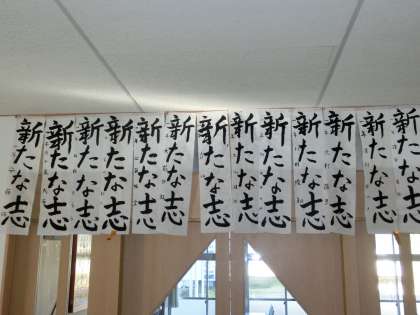 新たな志
新たな志
新たな志
新たな志
新たな志
新たな志
新たな志
新たな志
新たな志
新たな志
新たな志
新たな志
新たな志